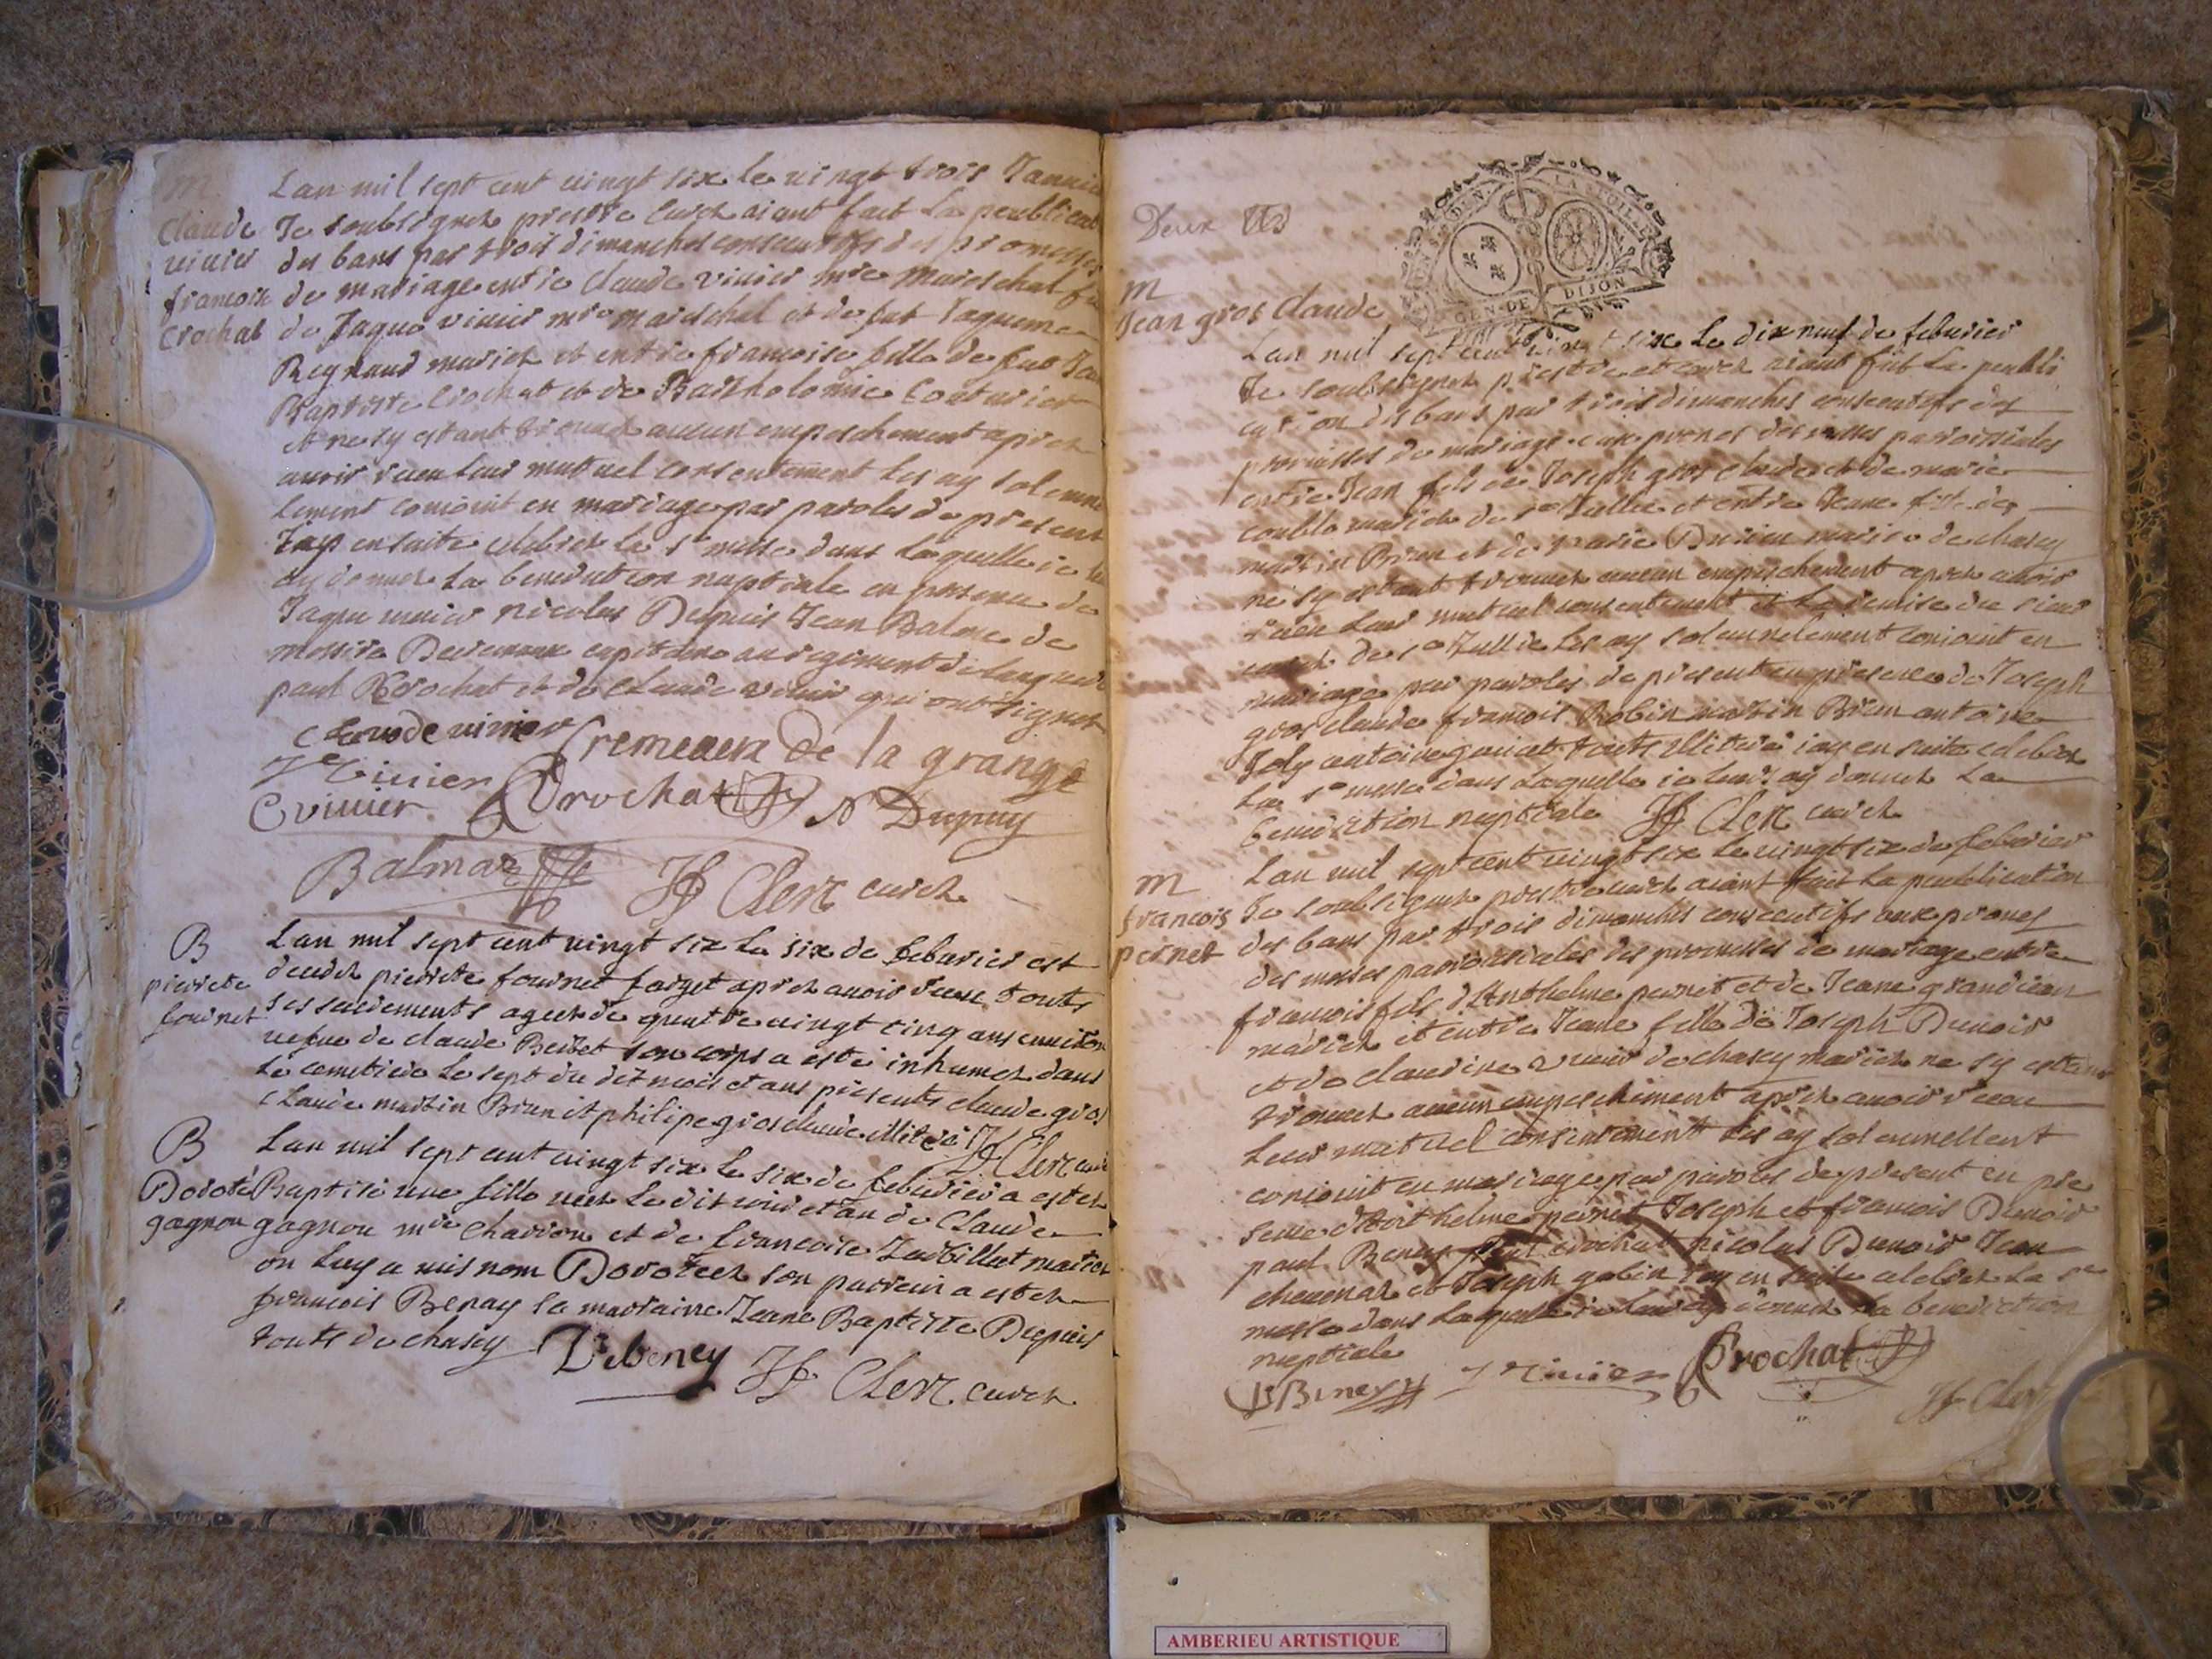 M
Claude
vivier
francoise
Crochat
Lan mil sept cent vingt six le vingt trois Janvier
Je soubsignez prestre curez aiant fait la publicat
des bans par trois dimanches consecutifs des promesses
de mariage entre Claude vivier mre mareschal
de Jaque vivier mre mareschal et de fut
Regnaud mariez et entre francoise fille de fut
Baptiste Crochat et de Bartholomie Couturier
et ne sy estant trouvez aucun empeschement aprez
avoir receu leur mutuel consentement les ay solemne
lement conioint en mariage par paroles de present
Jay ensuite celebrez la ste messe dans laquelle ie
ay donnez la benediction nuptiale en presence de
Jaque vivier nicolas Dupuis Jean Balme de
messire capitaine au regiment de
paul Crochat et de Claude vivier qui ont signez
Claude vivier Cremeaux de la grange
J Vivier
C vivier Crochat N Dupuy
Balmaz JF Clerc curez
B
pierrete
fournet
Lan mil sept cent vingt six le six de feburier est
decedez pierrete fournet forget aprez avoir receu touts
ses sacrements agee de quatre vingt cinq ans environ
vefve de claude Berbet son corps a esté inhumez dans
le cemetiere le sept du dit mois et ans presents claude gros
claude martin Brun et philipe gros claude illitere JF Clerc
B
Doroté
gagnou
Lan mil sept cent vingt six le six de feburier a estez
Baptisé une fille nee le dit iour et an de Claude
gagnou mre Charron et de francoise mariez
on luy a mis nom Doroteez son parrein a estez
francois Benay la marraine Jeane Baptiste Dupuis
touts de chasey Debeney JF Clerc curez
Deux
GEN. DE DIJON
M
Jean gros claude
Lan mil sept cent vingt six le dix neuf de feburier
Je soubsignez prestre et curez aiant fait la publi
cation des bans par trois dimanches consecutifs des
promesses de mariage aux prones des messes parroissiales
entre Jean fils de Joseph gros claude et de marie
mariez de st Jullie et entre Jeane fille de
martin Brun et de marie mariez de chasey
ne sy estant trouvez aucun empeschement aprez avoir
receu leur mutuel consentement et la remise du sieur
curez de st Jullie les ay solemnelement conioint en
mariage par paroles de present en presence de Joseph
gros claude francois Robin martin Brun antoine
Joly antoine touts illiteré iay en suite celebrez
la ste messe dans laquelle ie leur ay donnez la
benediction nuptiale JF Clerc curez
M
francois
pernet
Lan mil sept cent vingt six le vingt six de feburier
Je soubsignez prestre curez aiant fait la publication
des bans par trois dimanches consecutifs aux prones
des messes parroissiales des promesses de mariage entre
francois fils d'Anthelme pernet et de Jeane grandiean
mariez et entre Jeane fille de Joseph Dunoir
et de claudine vivier de chasey mariez ne sy estant
trouvez aucun empeschement aprez avoir receu
leur mutuel consentement les ay solemnellemt
conioint en mariage par paroles de present en pre
sence d'Anthelme pernet Joseph et francois Dunoir
paul Beney paul crochat nicolas Dunoir Jean
chevenaz et Joseph gobin iay en suite celebrez la ste
messe dans laquelle ie leur ay donnez la benediction
nuptiale
Beney J Vivier Crochat
JF Clerc
AMBERIEU ARTISTIQUE